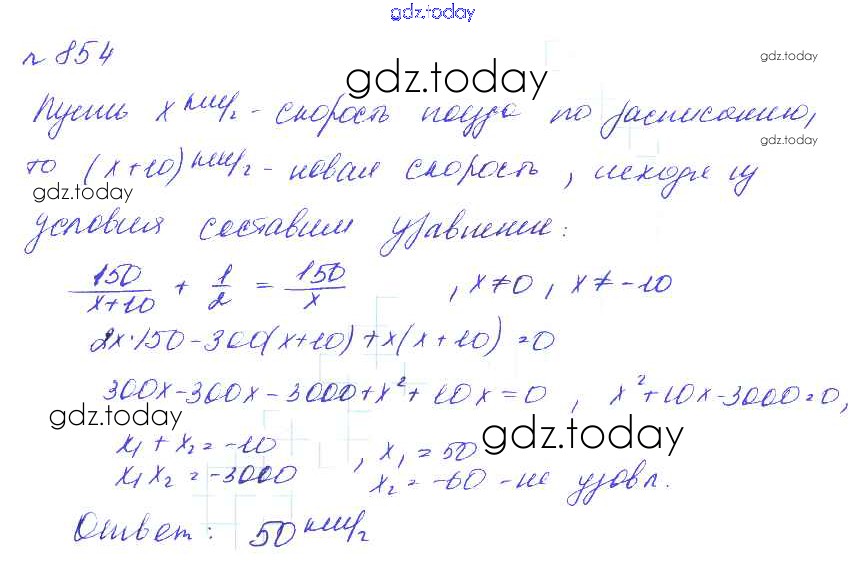 gdz.today
№ 854
gdz.today
gdz.today
Пусть x км/ч - скорость поезда по расписанию,
gdz.today
то (x+10) км/ч - новая скорость, исходя из
gdz.today
условия составим уравнение:
150/(x+10) + 1/2 = 150/x , x≠0, x≠-10
2x·150-300(x+10)+x(x+10)=0
300x-300x-3000+x²+10x=0, x²+10x-3000=0,
gdz.today
gdz.today
x₁+x₂=-10 , x₁=50
x₁x₂=-3000 x₂=-60 - не удовл.
Ответ: 50 км/ч